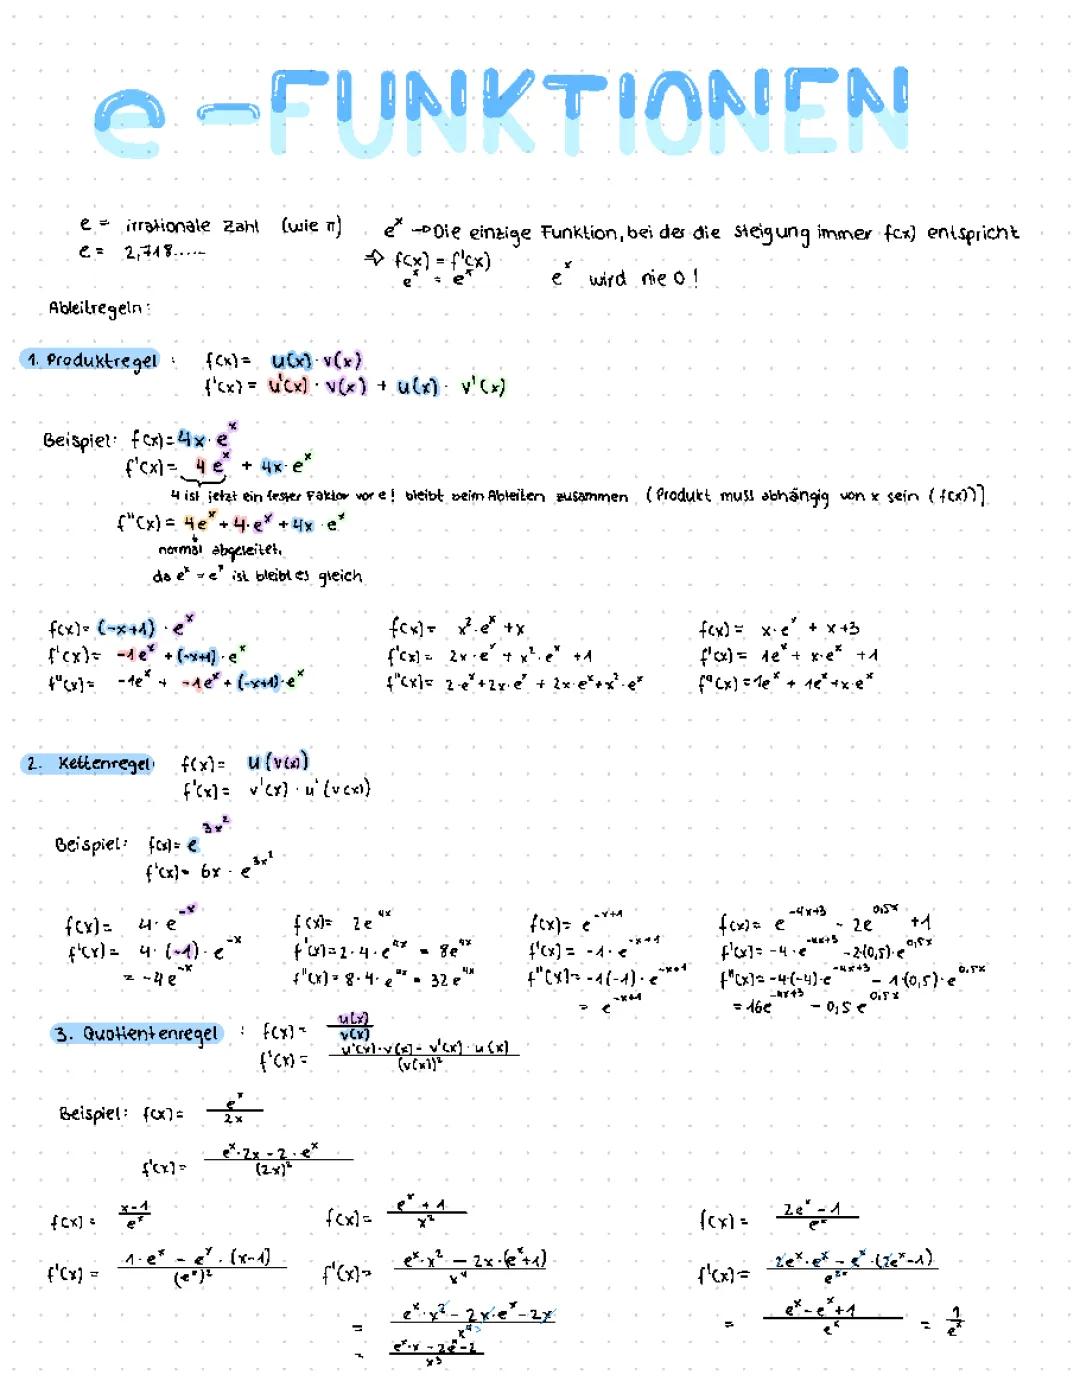 e-FUNKTIONEN
e = irrationale Zahl (wie π)
e = 2,718.....
eˣ → Die einzige Funktion, bei der die Steigung immer f(x) entspricht
⇒ f(x) = f'(x)
eˣ = eˣ
eˣ wird nie 0!
Ableitregeln:
1. Produktregel : f(x) = u(x) · v(x)
f'(x) = u'(x) · v(x) + u(x) · v'(x)
Beispiel: f(x) = 4x · eˣ
f'(x) = 4eˣ + 4x · eˣ
4 ist jetzt ein fester Faktor vor e! bleibt beim Ableiten zusammen (Produkt muss abhängig von x sein (f(x))]
f''(x) = 4eˣ + 4·eˣ + 4x · eˣ
normal abgeleitet,
da eˣ = eˣ ist bleibt es gleich
f(x) = (-x+1) · eˣ
f'(x) = -1eˣ + (-x+1) · eˣ
f''(x) = -1eˣ + -1eˣ + (-x+1) · eˣ
f(x) = x² · eˣ + x
f'(x) = 2x · eˣ + x² · eˣ + 1
f''(x) = 2·eˣ + 2x·eˣ + 2x·eˣ + x²·eˣ
f(x) = x·eˣ + x+3
f'(x) = 1eˣ + x·eˣ + 1
f''(x) = 1eˣ + 1eˣ + x·eˣ
2. Kettenregel: f(x) = u(v(x))
f'(x) = v'(x) · u'(v(x))
Beispiel: f(x) = e^(3x²)
f'(x) = 6x · e^(3x²)
f(x) = 4·e^(-x)
f'(x) = 4·(-1)·e^(-x)
= -4e^(-x)
f(x) = 2e^(4x)
f'(x) = 2·4·e^(4x) = 8e^(4x)
f''(x) = 8·4·e^(4x) = 32e^(4x)
f(x) = e^(-x+1)
f'(x) = -1·e^(-x+1)
f''(x) = -1(-1)·e^(-x+1)
= e^(-x+1)
f(x) = e^(-4x+3) - 2e^(0,5x) + 1
f'(x) = -4·e^(-4x+3) - 2·(0,5)·e^(0,5x)
f''(x) = -4·(-4)·e^(-4x+3) - 1·(0,5)·e^(0,5x)
= 16e^(-4x+3) - 0,5e^(0,5x)
3. Quotientenregel : f(x) = u(x)/v(x)
f'(x) = (u'(x)·v(x) - v'(x)·u(x))/(v(x))²
Beispiel: f(x) = eˣ/2x
f'(x) = (eˣ·2x - 2·eˣ)/(2x)²
f(x) = (x-1)/eˣ
f'(x) = (1·eˣ - eˣ·(x-1))/(eˣ)²
f(x) = (eˣ+1)/x²
f'(x) = (eˣ·x² - 2x·(eˣ+1))/x⁴
= (eˣ·x² - 2x·eˣ - 2x)/x⁴
= (eˣ·x - 2eˣ - 2)/x³
f(x) = (2eˣ - 1)/eˣ
f'(x) = (2eˣ·eˣ - eˣ·(2eˣ-1))/e^(2x)
= (eˣ - eˣ + 1)/eˣ = 1/eˣ